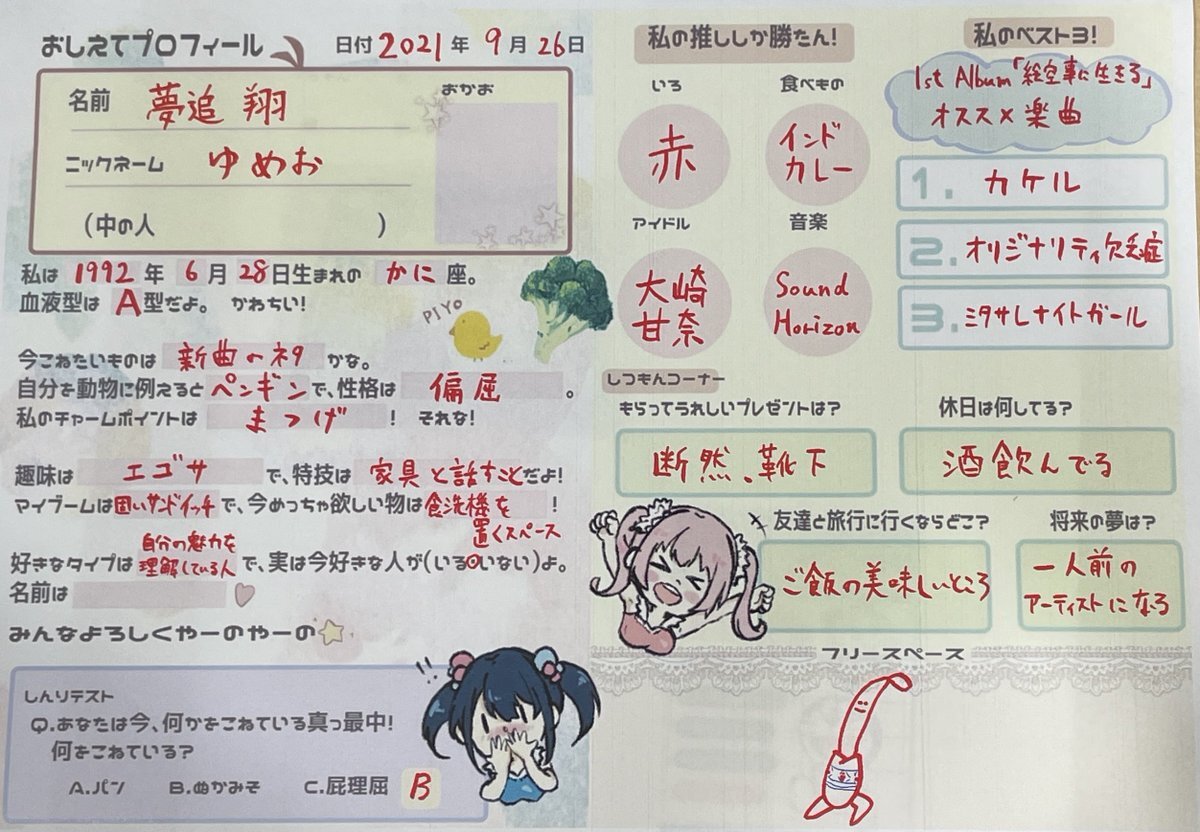 おしえてプロフィール
日付 2021 年 9 月 26 日
名前 夢追 翔
おかお
ニックネーム ゆめお
(中の人 )
私は 1992 年 6 月 28 日生まれの かに 座。
血液型は A 型だよ。 かわちい!
PIYO
今こねたいものは 新曲のネタ かな。
自分を動物に例えると ペンギン で、性格は 偏屈 。
私のチャームポイントは まつげ ! それな!
趣味は エゴサ で、特技は 家具と話すこと だよ!
マイブームは 固いサンドイッチ で、今めっちゃ欲しい物は 食洗機を置くスペース !
好きなタイプは 自分の魅力を理解している人 で、実は今好きな人が(いる・いない)よ。
名前は
みんなよろしくやーのやーの
しんりテスト
Q.あなたは今、何かをこねている真っ最中!
何をこねている?
A.パン B.ぬかみそ C.屁理屈 B
!!
私の推ししか勝たん!
いろ
赤
食べもの
インド
カレー
アイドル
大崎
甘奈
音楽
Sound
Horizon
私のベスト3!
1st Album「絵空事に生きる」
オススメ楽曲
1. カケル
2. オリジナリティ欠乏症
3. ミタサレナイトガール
しつもんコーナー
もらってうれしいプレゼントは?
断然、靴下
休日は何してる?
酒飲んでる
友達と旅行に行くならどこ?
ご飯の美味しいところ
将来の夢は?
一人前の
アーティストになる
フリースペース